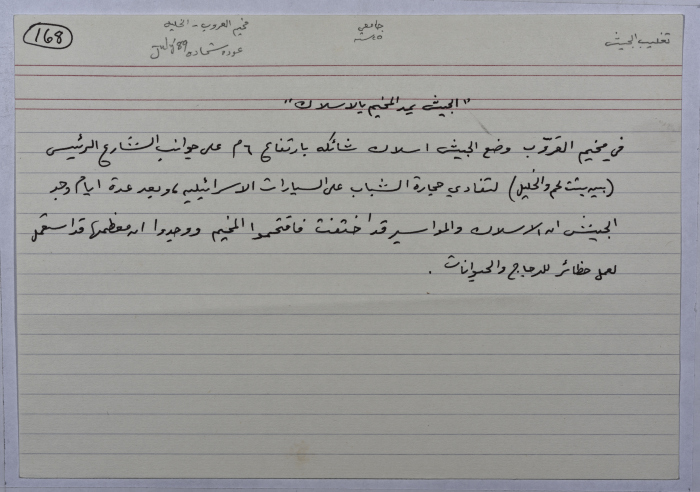 168
مخيم العروب - الخليل
عودة شحادة July 89
جامعي
٤٥ سنة
تغليب الجيش
"الجيش يمد المخيم بالاسلاك"
في مخيم العرّوب وضع الجيش اسلاك شائكه بارتفاع ٦م على جوانب الشارع الرئيسي
(بين بيت لحم والخليل) لتفادي حجارة الشباب على السيارات الاسرائيليه، وبعد عدة ايام وجد
الجيش ان الاسلاك والمواسير قد اختفت فاقتحموا المخيم ووجدوا ان معظمها قد استعمل
لعمل حظائر للدجاج والحيوانات .